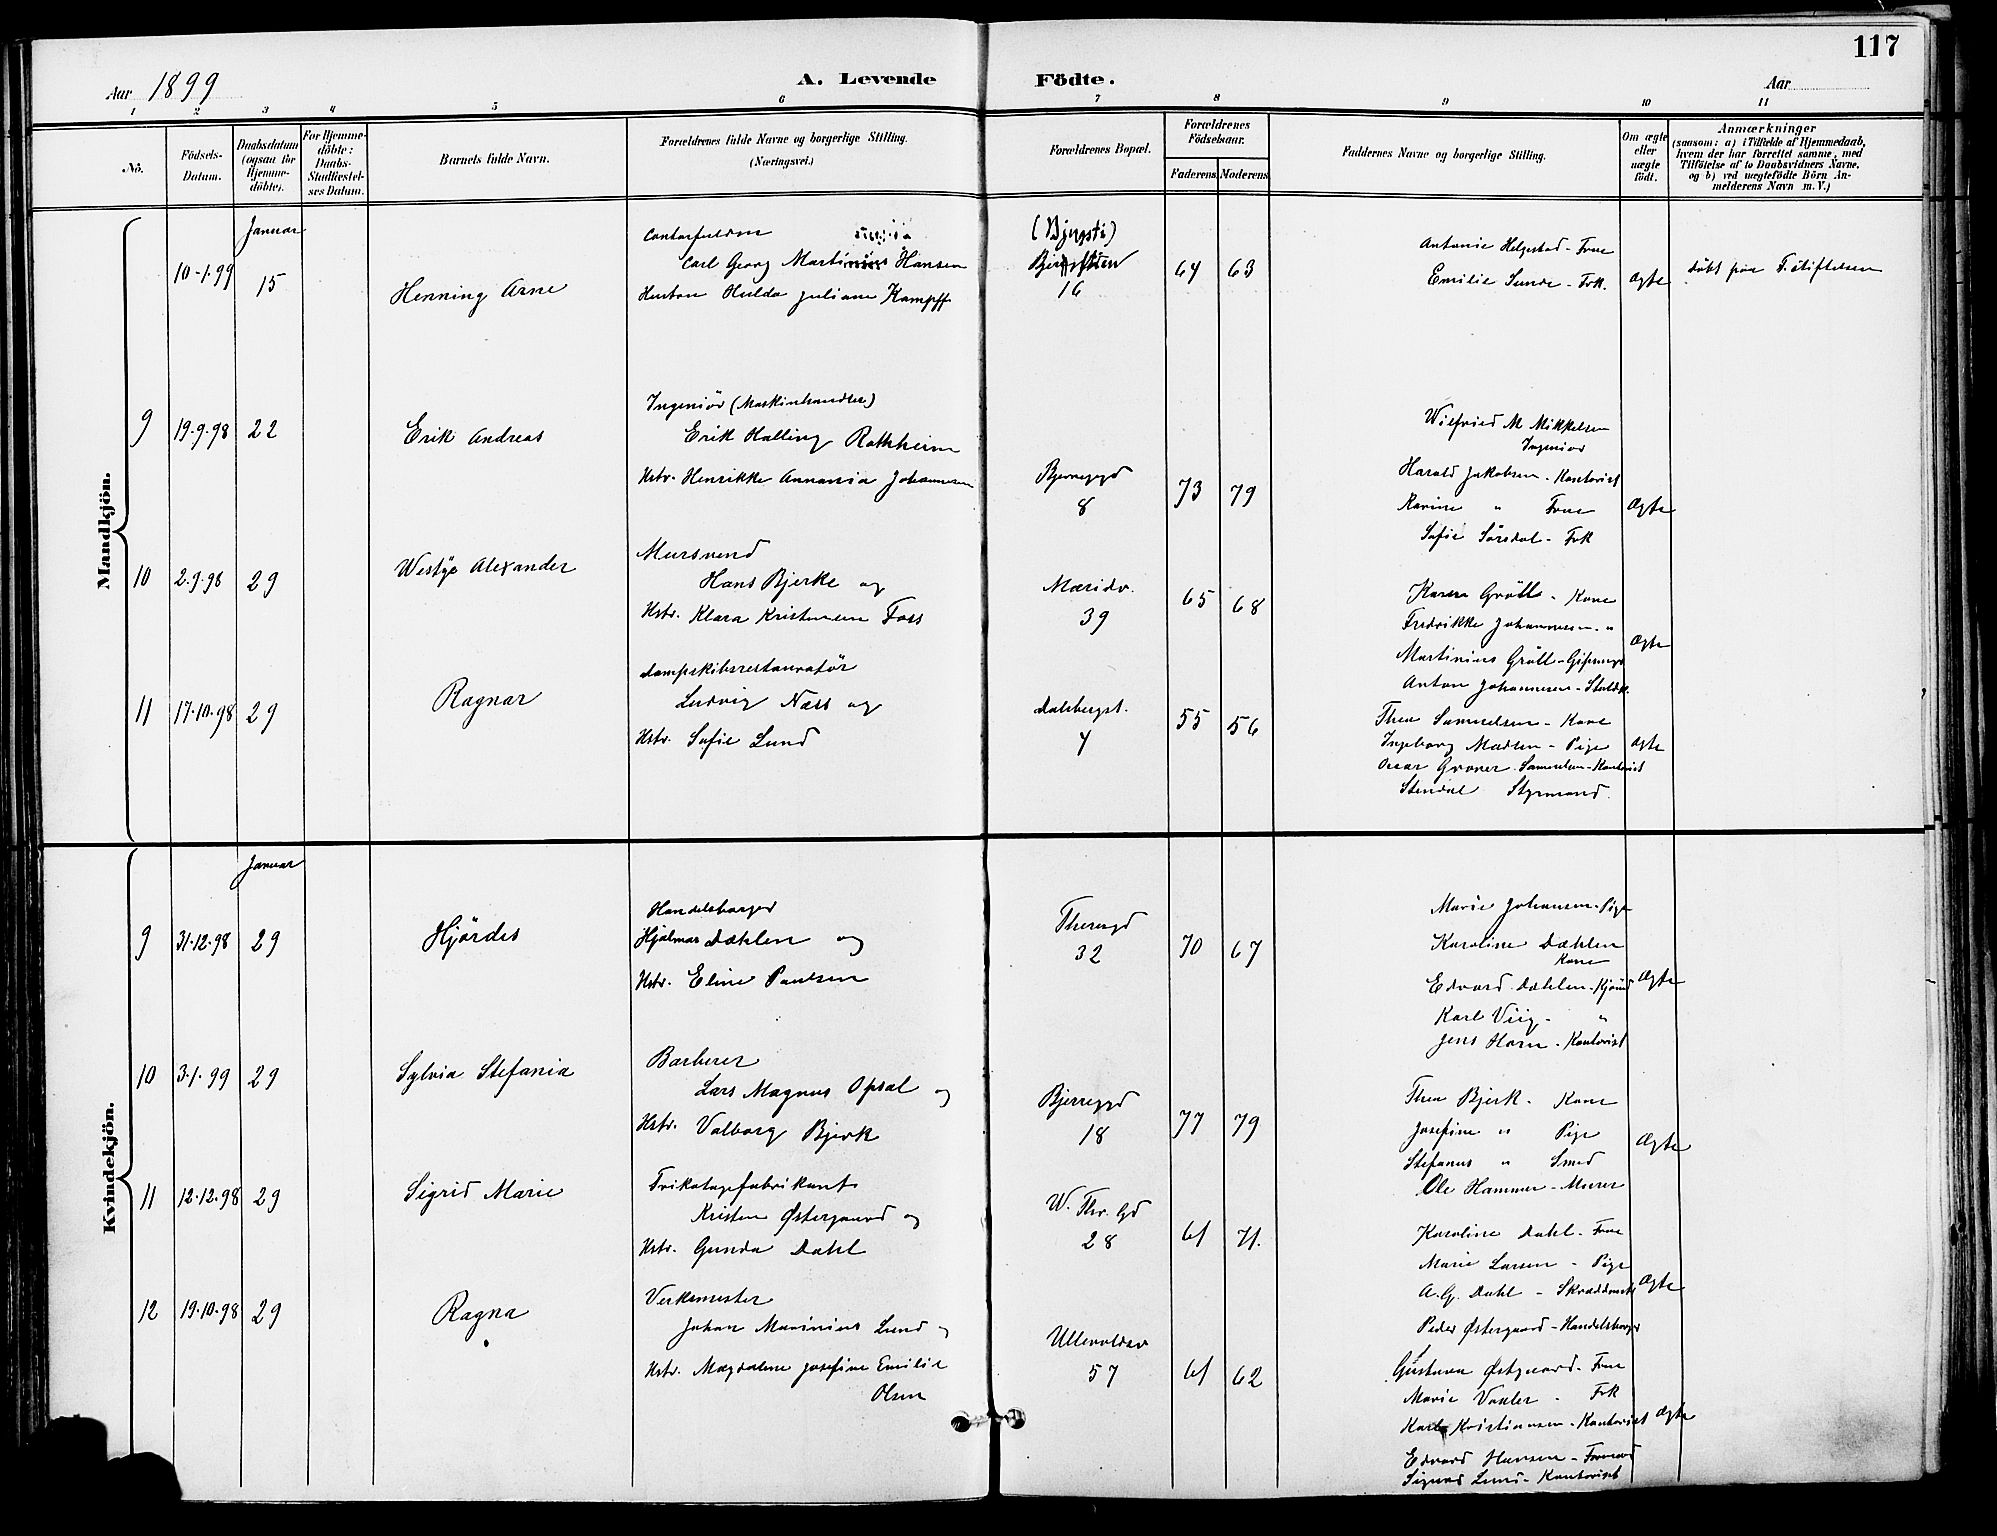 117
Aar 1899
A. Levende Födte.
Aar
1 2 3 4 5 6 7 8 9 10 11
No.
Födsels-
Datum.
Daabsdatum
(ogsaa for
Hjemme-
döbte).
For Hjemme-
döbte:
Daabs-
Stadfæstel-
ses Datum.
Barnets fulde Navn.
Forældrenes fulde Navne og borgerlige Stilling.
(Næringsvei.)
Forældrenes Bopæl.
Forældrenes
Födselsaar.
Faderens Moderens
Faddernes Navne og borgerlige Stilling.
Om ægte
eller
uægte
födt.
Anmærkninger
(saasom: a) i Tilfælde af Hjemmedaab,
hvem der har forrettet samme, med
Tilföielse af to Daabsvidners Navne,
og b) ved uægtefödte Börn An-
melderens Navn m. V.)
Mandkjön.
Januar
10-1.99
15
Henning Arne
Carl Georg Hansen
Hustru Hulda Juliane Kampff
16
64 63
Antonie Helgestad - Frue
Emilie Sunde - Frk.
Ægte
döbt paa F.stiftelsen
9
19.9.98
22
Erik Andreas
Ingeniör (Maskinhandler)
Erik Halling Rothheim
Hstr. Henrikke Annania Johannesen
Bjerregd
8
73 79
Wilfried M Mikkelsen
Ingeniör
Harald Jakobsen - Kontorist
Karine " Frue
Sofie Sörsdal - Frk
Ægte
10
2.9.98
29
Westye Alexander
Mursvend
Hans Bjerke og
Hstr. Klara Kristensen Foss
Maridv.
39
65 68
Karen Grött - Kone
Fredrikke Johannesen - "
Martinius Grött - Gipsmager
Anton Johannesen - Staldk.
Ægte
11
17.10.98
29
Ragnar
Dampskibsrestauratör
Ludvig Næss og
Hstr. Sofie Lund
Dalsbergst.
4
55 56
Thea Samuelsen - Kone
Ingeborg Madsen - Pige
Oscar Graner Samuelsen - Kontorist
Stendal Styrmand.
Ægte
Kvindekjön.
Januar
9
31.12.98
29
Hjördis
Handelsborger
Hjalmar Dæhlen og
Hstr. Eline Paulsen
Theresgd
32
70 67
Marie Johansen - Pige
Karoline Dæhlen
Kone
Edvard Dæhlen - Kjömd
Karl Viig - "
Jens Horn - Kontorist
Ægte
10
3.1.99
29
Sylvia Stefania
Barberer
Lars Magnus Opsal og
Hstr. Valborg Bjerk
Bjerregd
18
77 79
Thea Bjerk - Kone
Josefine " Pige
Stefanus " Smed
Ole Hammer - Murer
Ægte
11
12.12.98
29
Sigrid Marie
Trikotagefabrikant
Kristen Østergaard og
Hstr. Gunda Dahl
W. Thr. Gd
28
61 71.
Karoline Dahl - Frue
Marie Larsen - Pige
A. G. Dahl - Skræddmst
Peder Østergaard - Handelsborger
Ægte
12
19.10.98
29
Ragna
Verksmester
Johan Marinius Lund og
Hstr. Magdalene Josefine Emilie
Olsen
Ullevoldsv
57
61 62
Gustava Østgaard - Frue
Marie Vaaler - Frk
Karl Kristiansen - Kontorist
Edvard Hansen - Formand
Signas Lund - Kontorist
Ægte